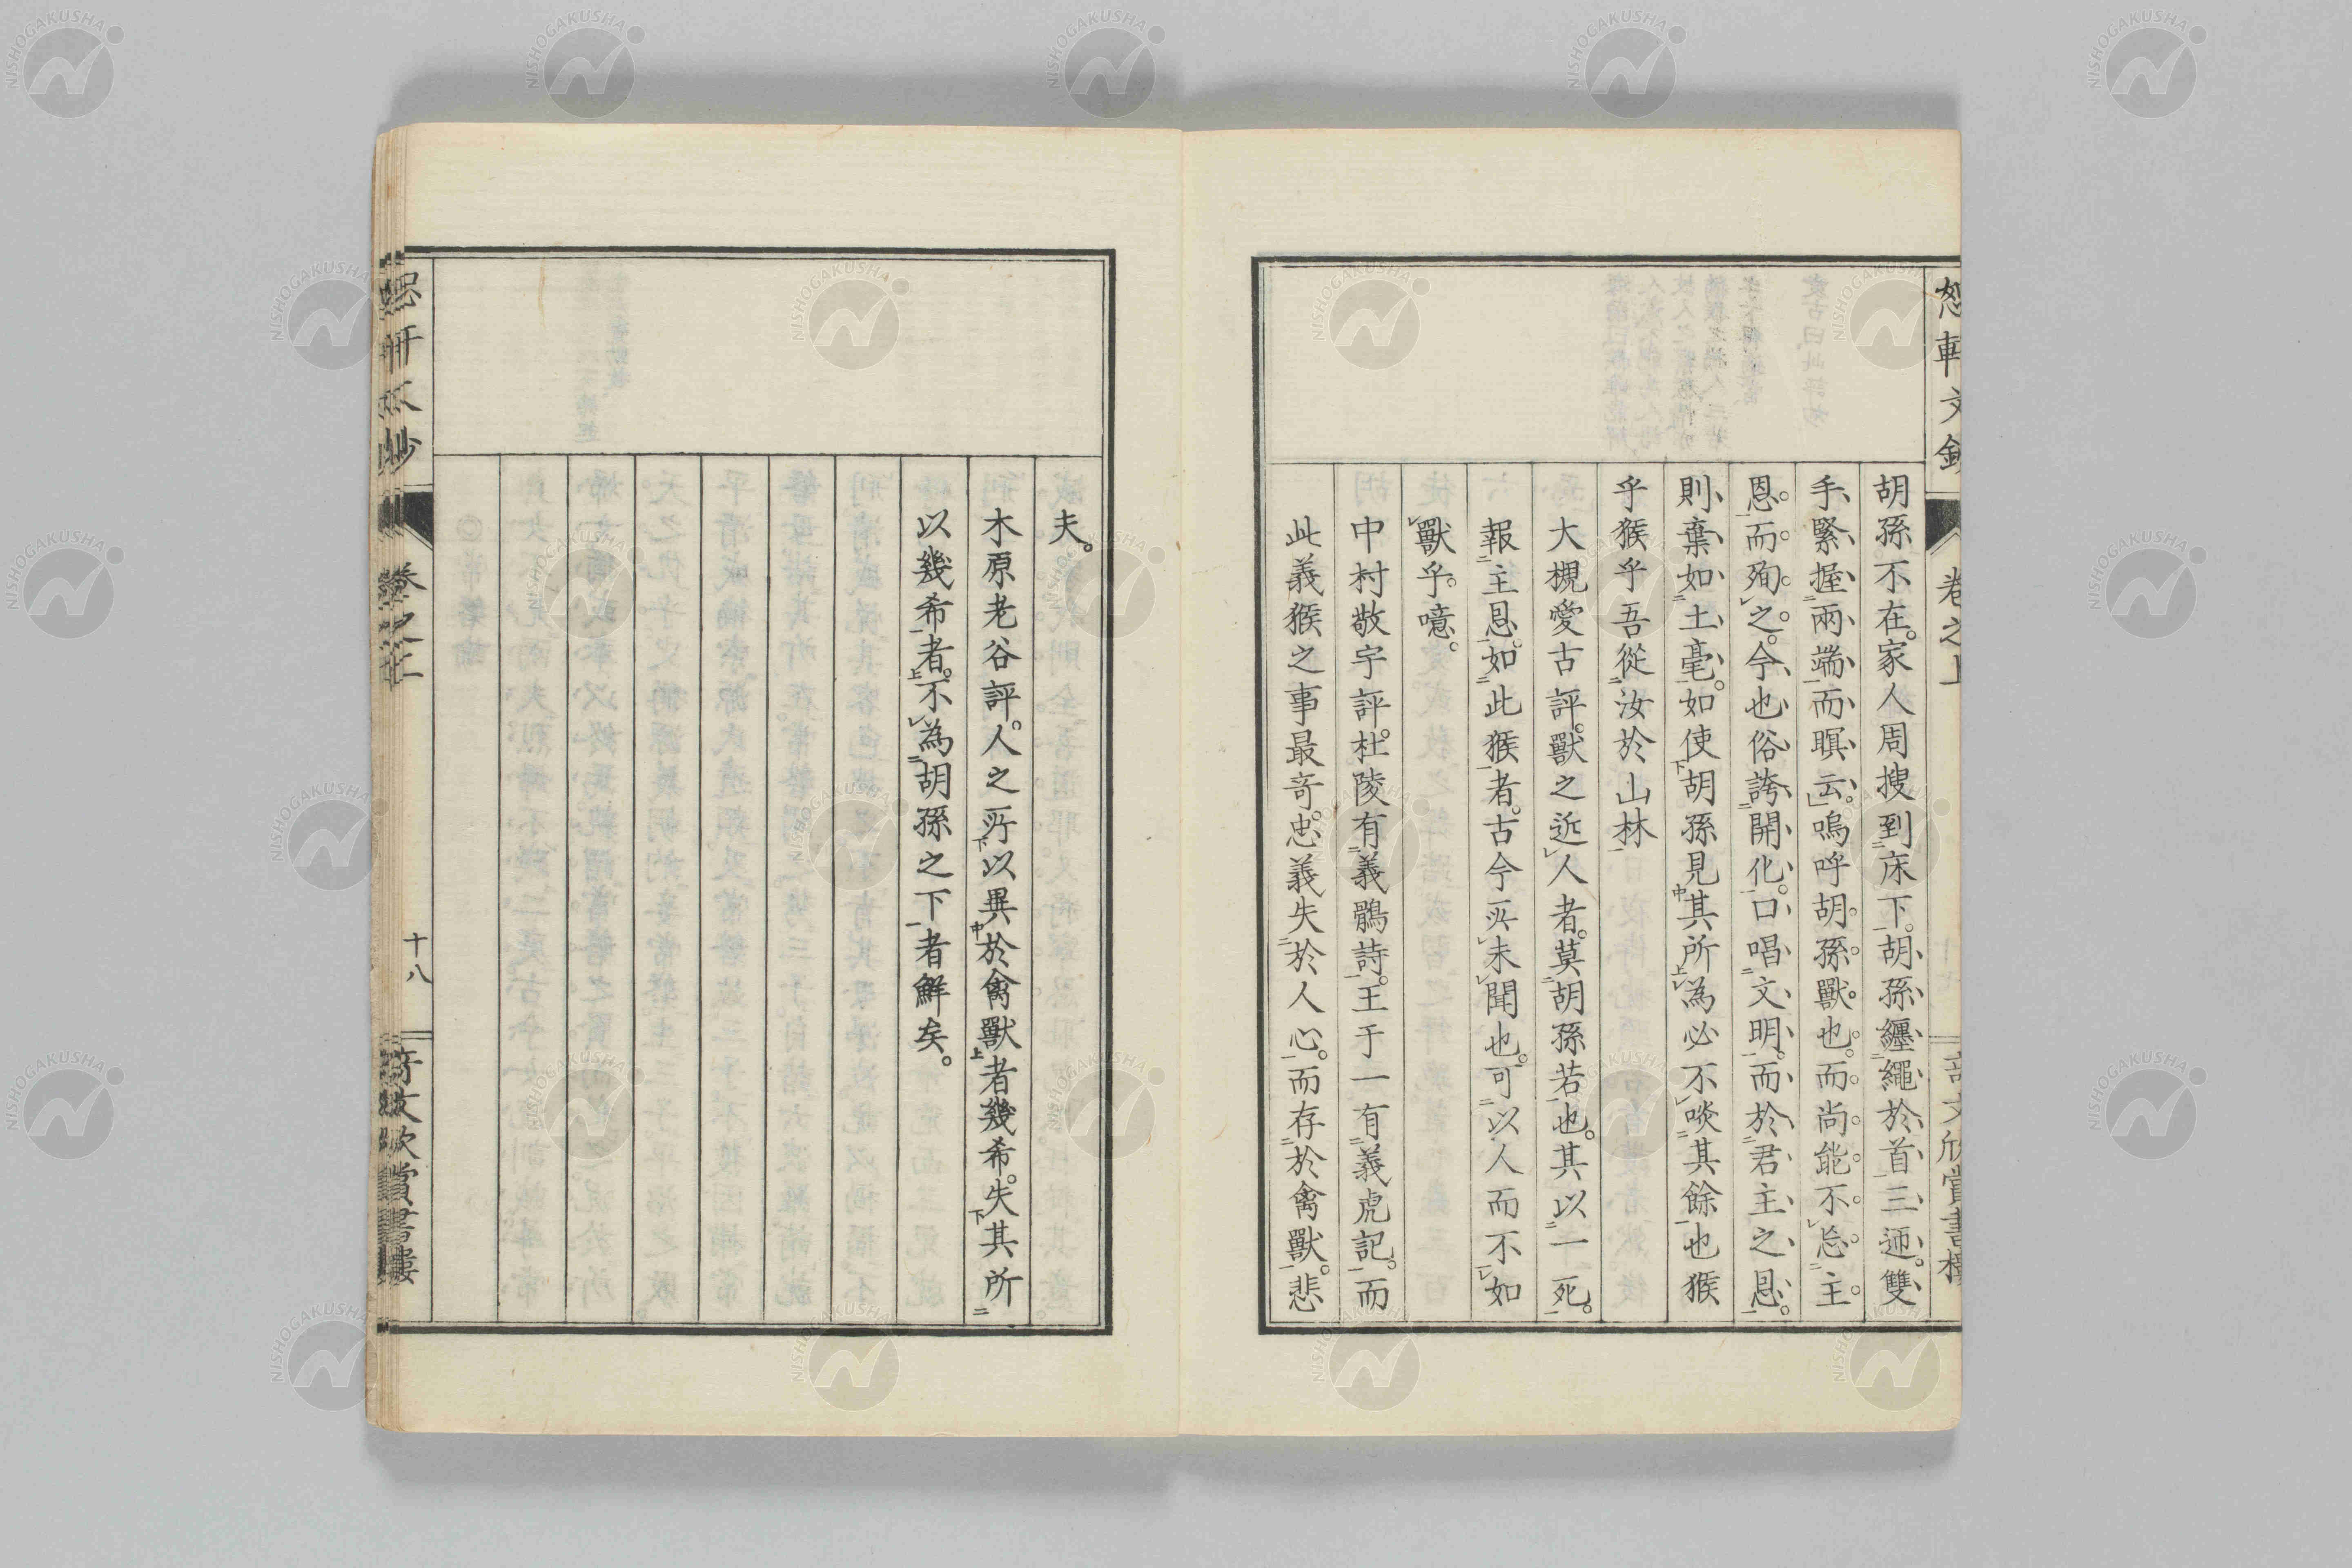 恕軒文鈔
卷之上
奇文欣賞書樓
胡孫不在。家人周搜到床下。胡孫纏繩於首三迊。雙
手緊握兩端而瞑云。嗚呼胡孫獸也。而尚能不忘主
恩。而殉之。今也俗誇開化。口唱文明。而於君主之恩。
則棄如土毫。如使胡孫見其所為必不啖其餘也猴
乎猴乎吾從汝於山林
大槻愛古評。獸之近人者。莫胡孫若也。其以一死。
報主恩。如此猴者。古今所未聞也。可以人而不如
獸乎。噫。
中村敬宇評。杜陵有義鶻詩。王于一有義虎記。而
此義猴之事最奇。忠義失於人心。而存於禽獸。悲
夫。
木原老谷評。人之所以異於禽獸者幾希。失其所
以幾希者。不為胡孫之下者鮮矣。
十八